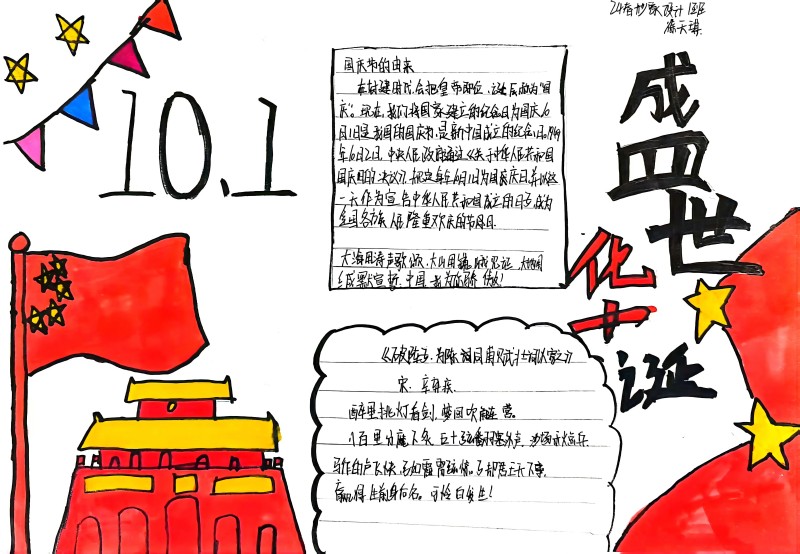 24春
设计1班
10.1
盛世
华
诞
国庆节的由来
在封建时代,会把皇帝即位、诞辰称为"国
庆"。现在,我们将国家建立的纪念日为国庆。
月1日是我国的国庆节,是新中国成立的纪念日。1949
年6月2日,中央人民政府通过《关于中华人民共和国
国庆日的决议》,把每年
一天作为宣告中华人民共和国成立的日子,成为
全国各方族人民隆重欢庆的节日。
大海用涛声歌颂,大山用
默宣誓,中国,我为你骄傲!
《破阵子·为陈同甫赋壮词以寄之》
宋·辛弃疾
醉里挑灯看剑,梦回吹角连营。
八百里分麾下炙,五十弦翻塞外声,沙场秋点兵
马作的卢飞快,弓如霹雳弦惊。了却君王天下事,
赢得生前身后名。可怜白发生!